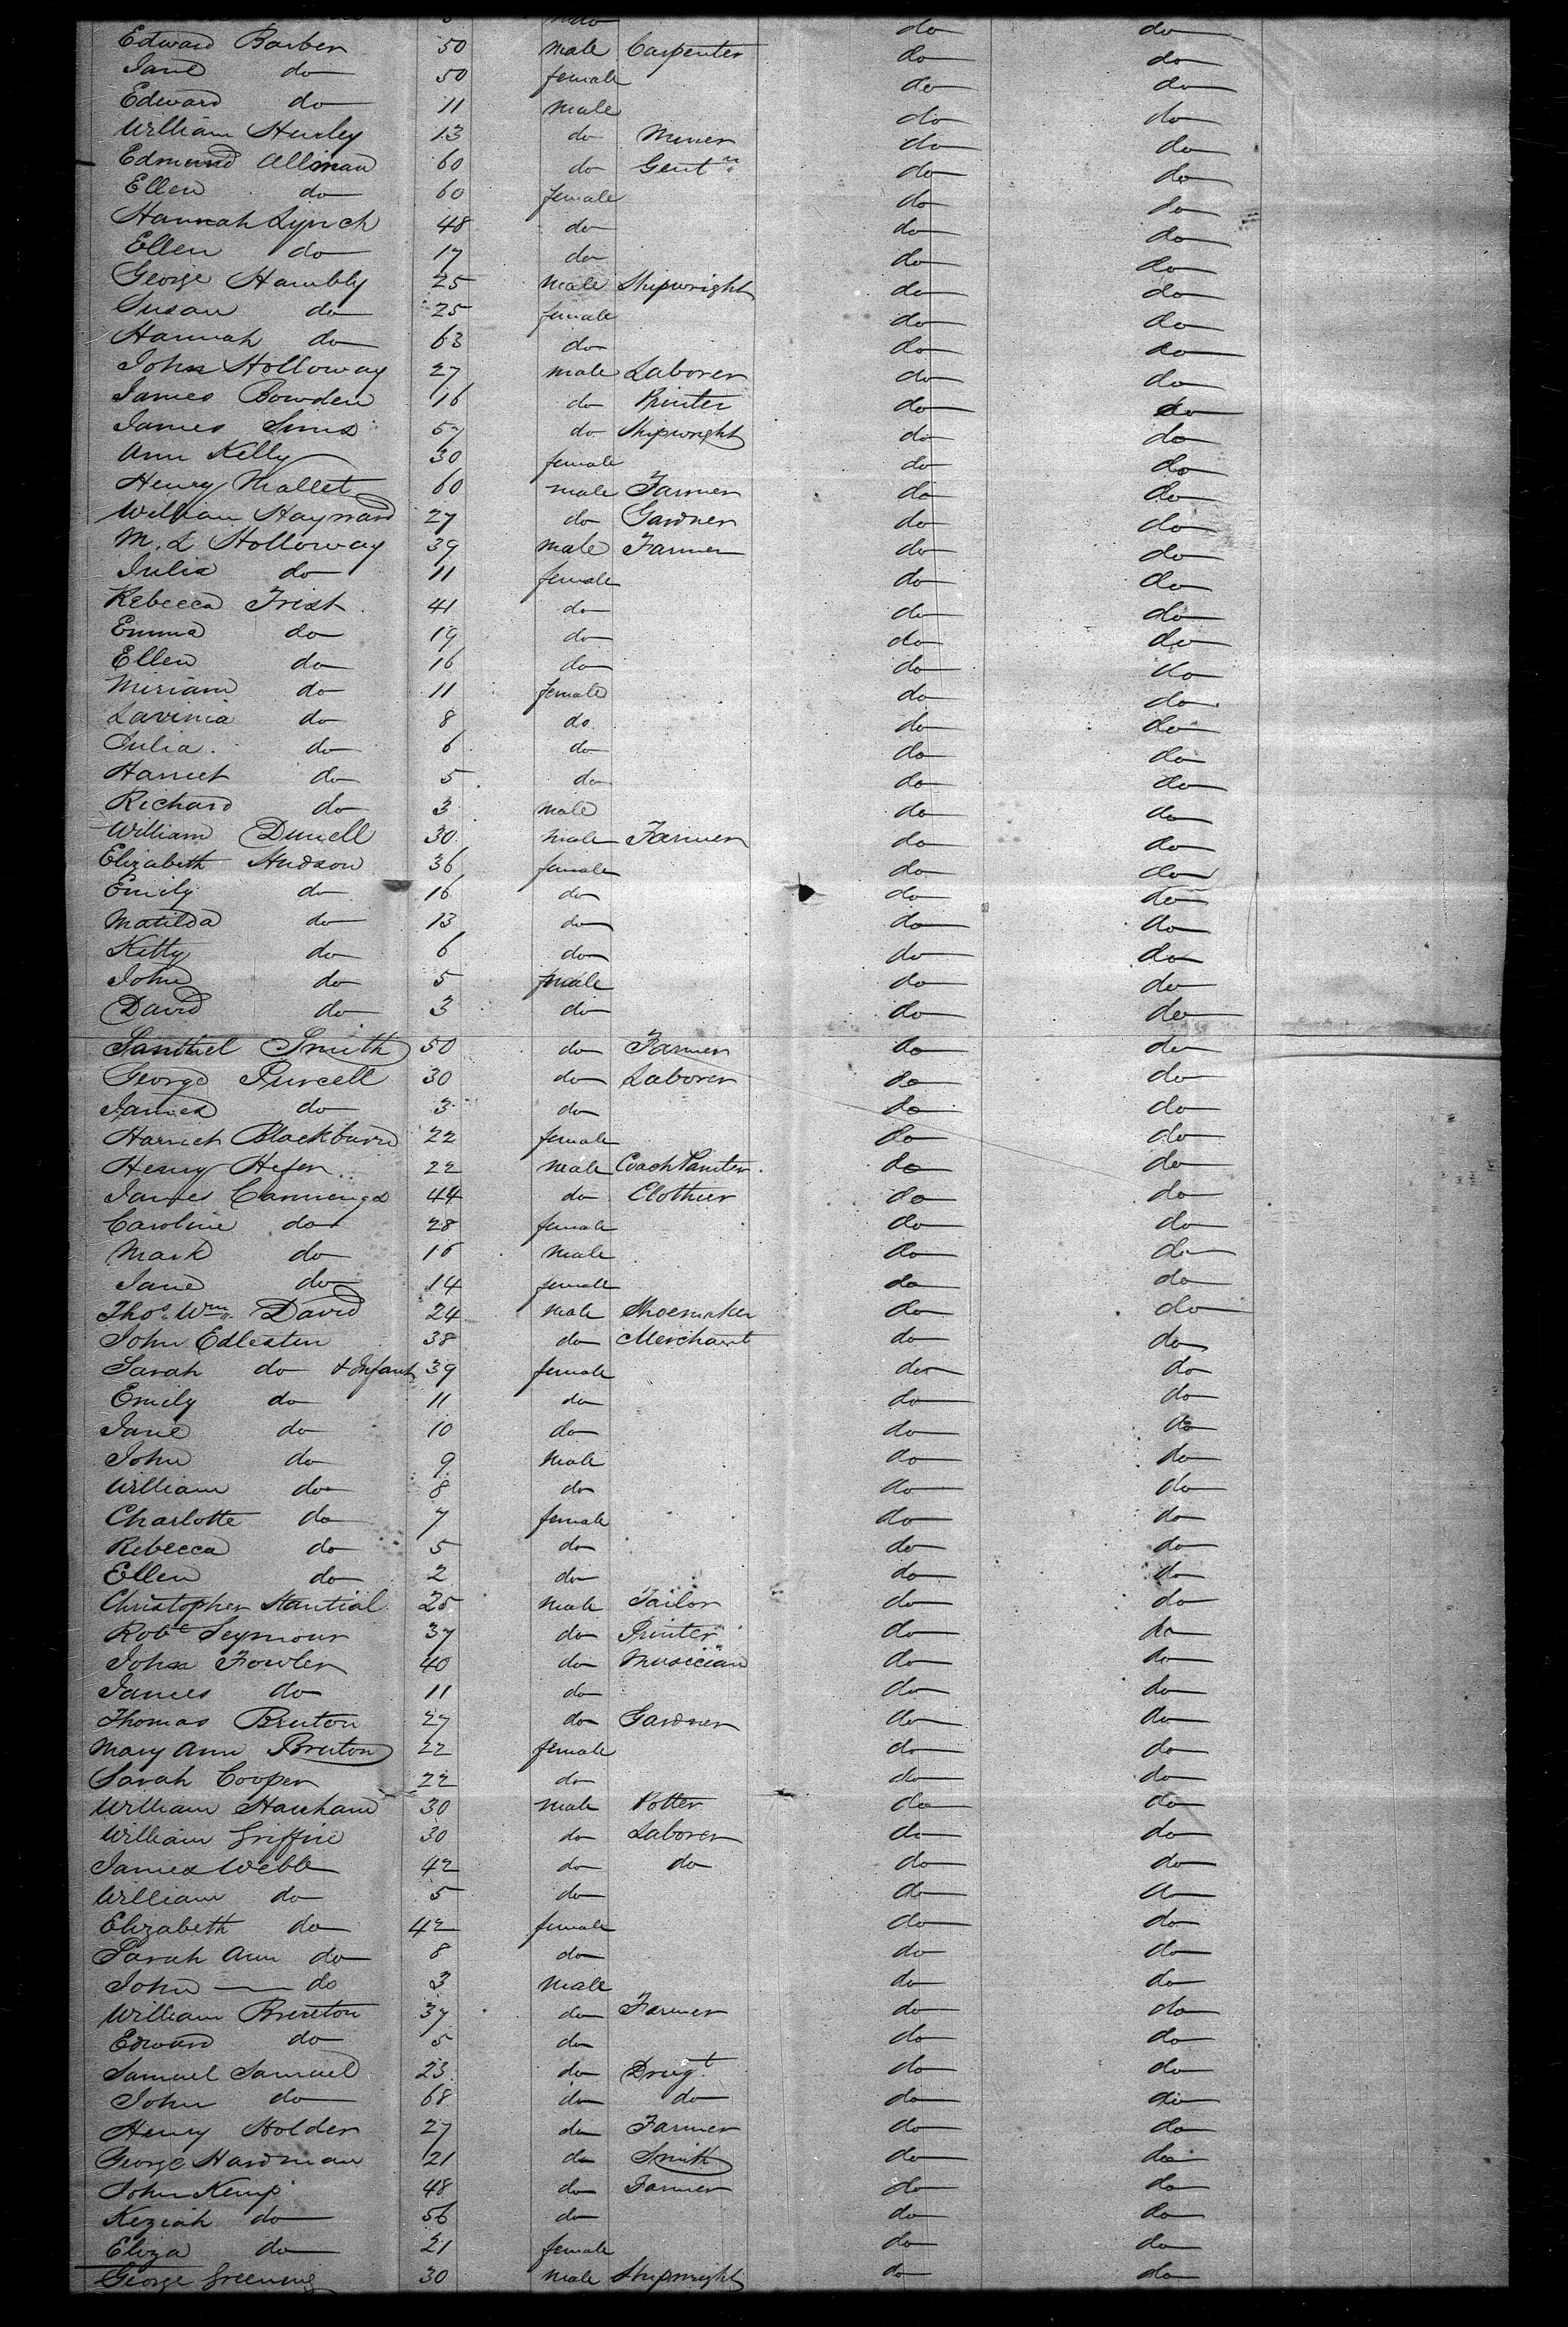 do do do
Edward Barber 50 male Carpenter do do
Jane do 50 female do do
Edward do 11 male do do
William Hurley 13 do Miner do do
Edmund Allman 60 do Gentn do do
Ellen do 60 female do do
Hannah Lynch 48 do do do
Ellen do 17 do do do
George Hambly 25 male Shipwright do do
Susan do 25 female do do
Hannah do 63 do do do
John Holloway 27 male Laborer do do
James Bowden 16 do Printer do do
James Sims 57 do Shipwright do do
Ann Kelly 30 female do do
Henry Mallet 60 male Farmer do do
William Hayward 27 do Gardner do do
M. L Holloway 39 male Farmer do do
Julia do 11 female do do
Rebecca Trist 41 do do do
Emma do 19 do do do
Ellen do 16 do do do
Miriam do 11 female do do
Lavinia do 8 do do do
Julia do 6 do do do
Harriet do 5 do do do
Richard do 3 male do do
William Dunell 30 male Farmer do do
Elizabeth Hudson 36 female do do
Emily do 16 do do do
Matilda do 13 do do do
Kitty do 6 do do do
John do 5 do do
David do 3 do do do
Samuel Smith 50 do Farmer do do
George Purcell 30 do Laborer do do
James do 3 do do do
Harriet Blackburn 22 female do do
Henry 22 male Coach Painter do do
James 44 do Clothier do do
Caroline do 28 female do do
Mark do 16 male do do
Jane do 14 female do do
Thos. Wm. David 24 male Shoemaker do do
John Edlesten 38 do Merchant do do
Sarah do & Infant 39 female do do
Emily do 11 do do do
Jane do 10 do do do
John do 9 male do do
William do 8 do do do
Charlotte do 7 female do do
Rebecca do 5 do do do
Ellen do 2 do do do
Christopher Stantial 25 male Tailor do do
Robt Seymour 37 do Printer do do
John Fowler 40 do Musician do do
James do 11 do do do
Thomas Bruton 27 do Gardner do do
Mary Ann Bruton 22 female do do
Sarah Cooper 22 do do do
William 30 male Potter do do
William Griffin 30 do Laborer do do
James Webb 42 do do do do
William do 5 do do do
Elizabeth do 42 female do do
Sarah Ann do 8 do do do
John do 3 male do do
William Brereton 37 do Farmer do do
Edward do 5 do do do
Samuel Samuel 23 do Drugt. do do
John do 68 do do do do
Henry Holder 27 do Farmer do do
George Hardman 21 do Smith do do
John Kemp 48 do Farmer do do
Keziah do 56 do do do
Eliza do 21 female do do
George Greening 30 male Shipwright do do